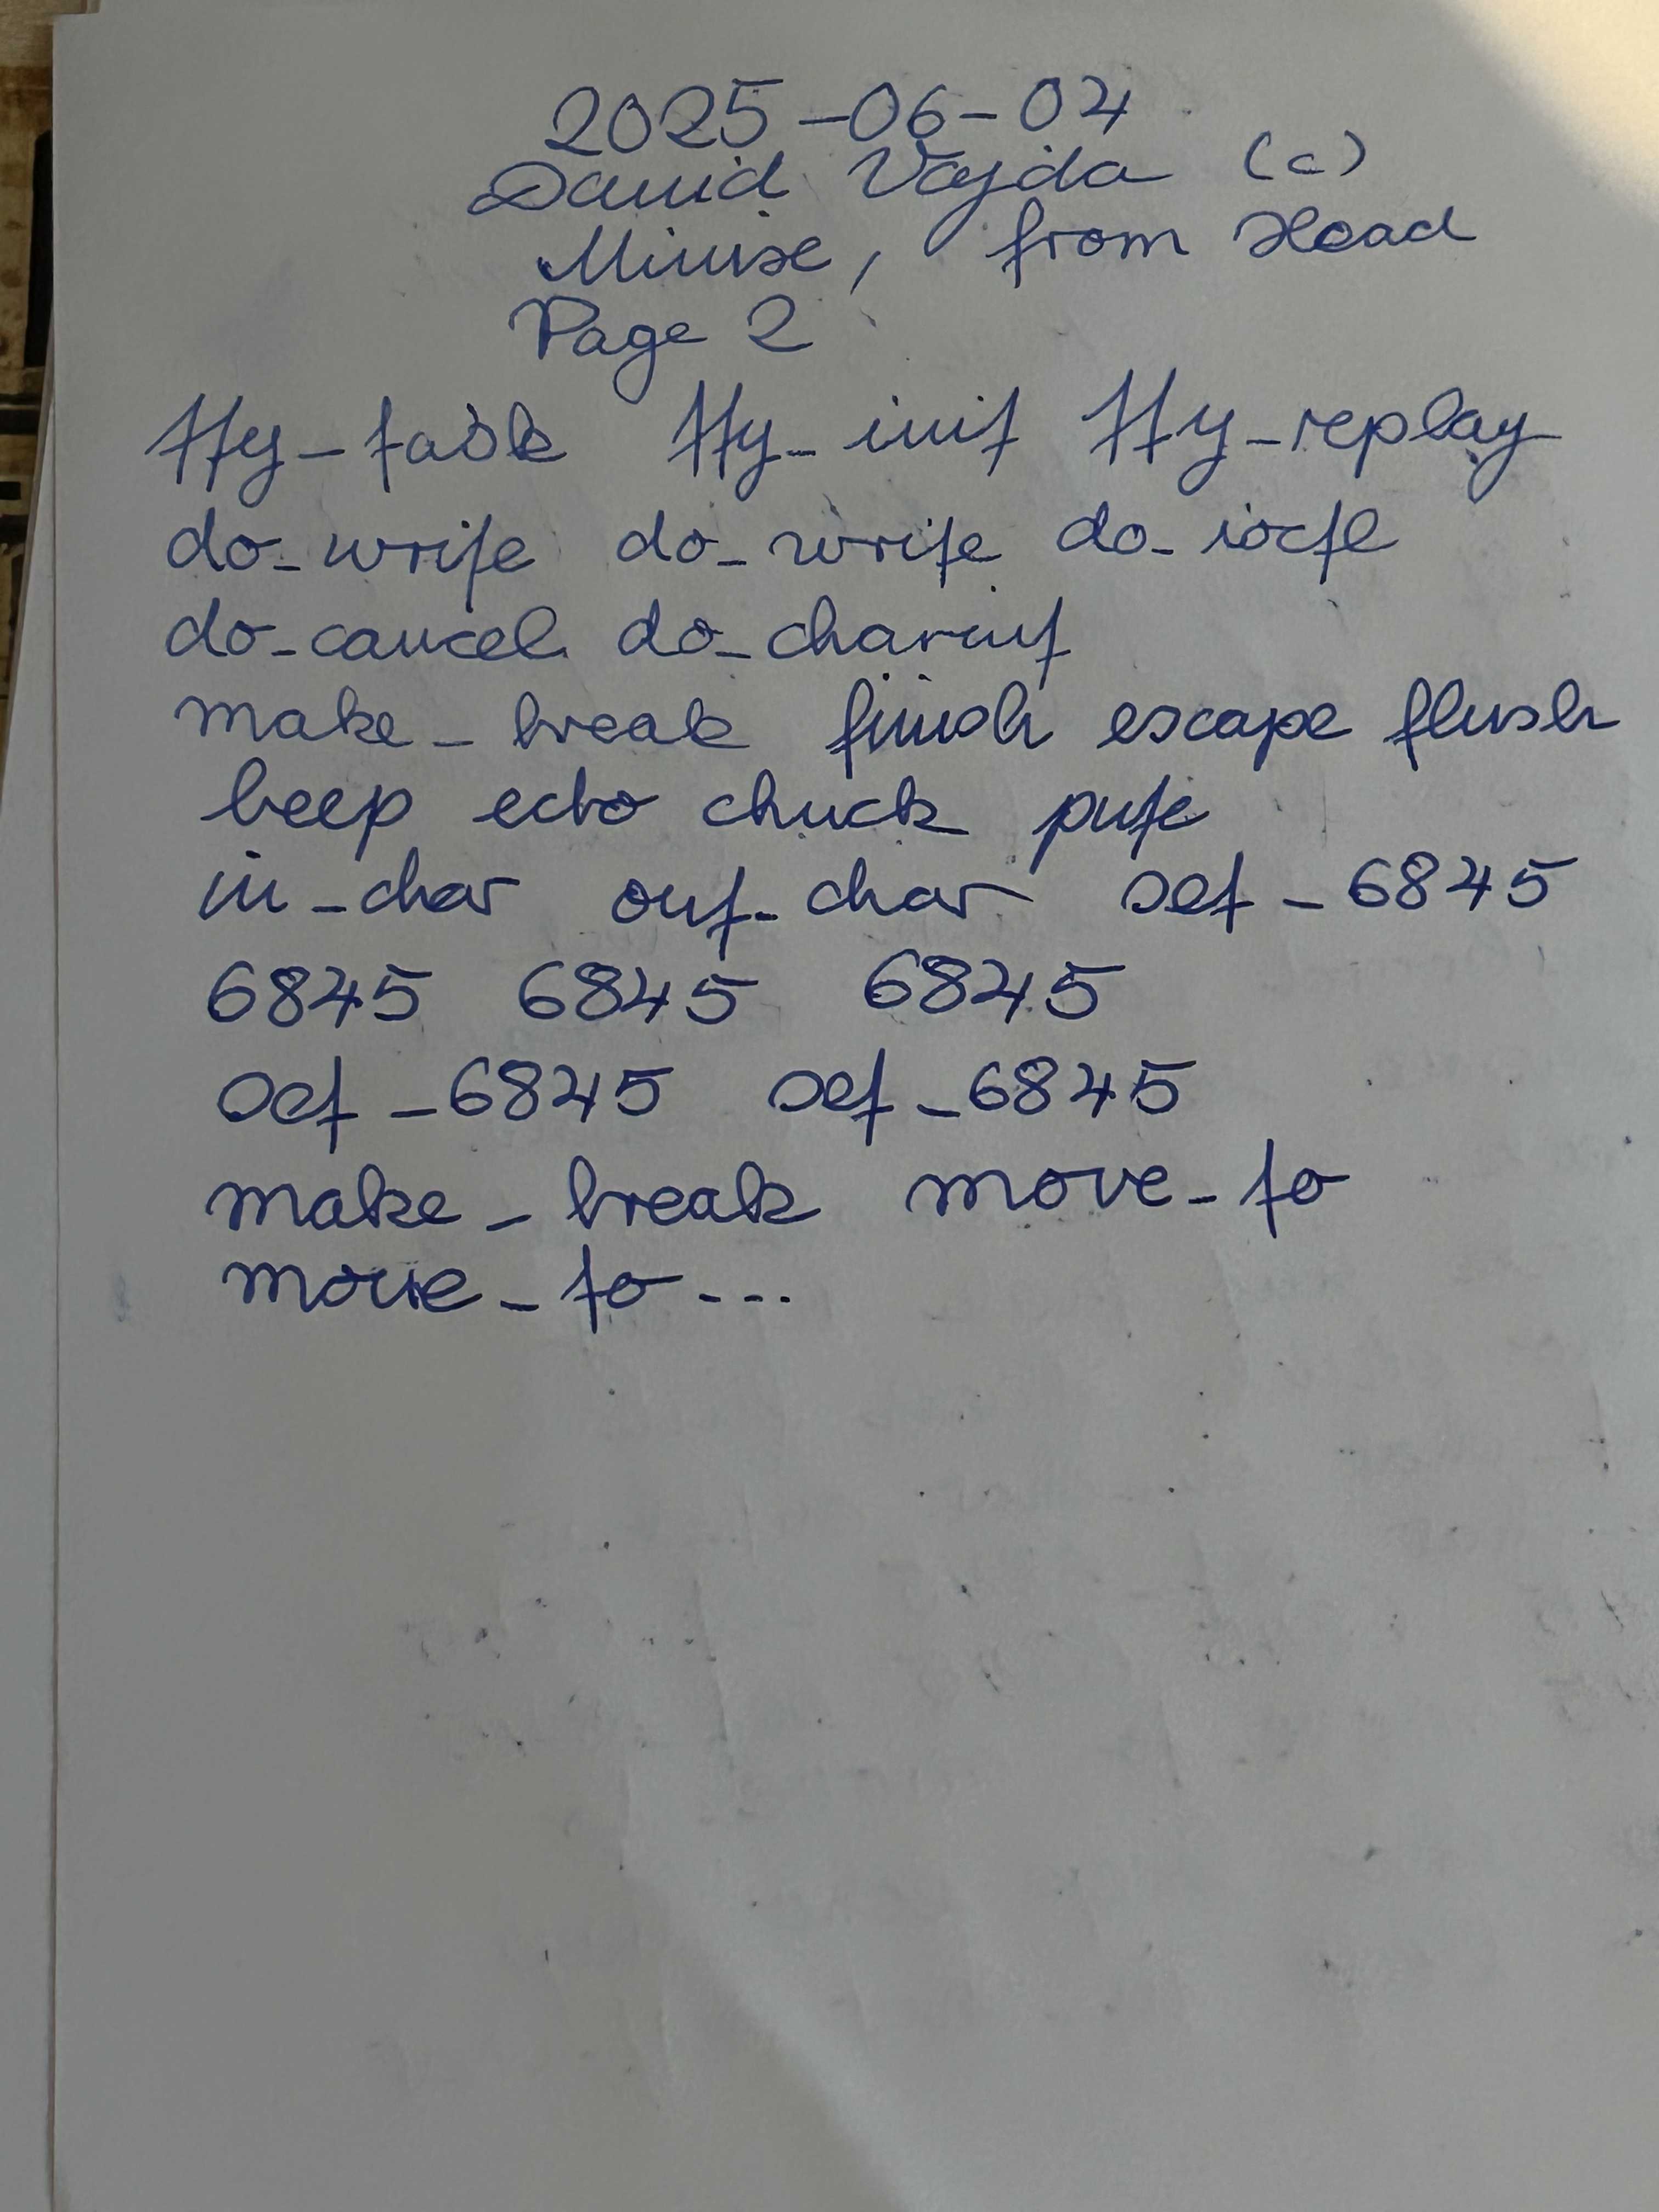 2025-06-04
David Vajda (c)
Minise, from Head
Page 2
tty_task tty_init tty_replay
do_write do_write do_ioctl
do_cancel do_charint
make_break finish escape flush
beep echo chuck pute
in_char out_char set_6845
6845 6845 6845
set_6845 set_6845
make_break move_to
move_to...